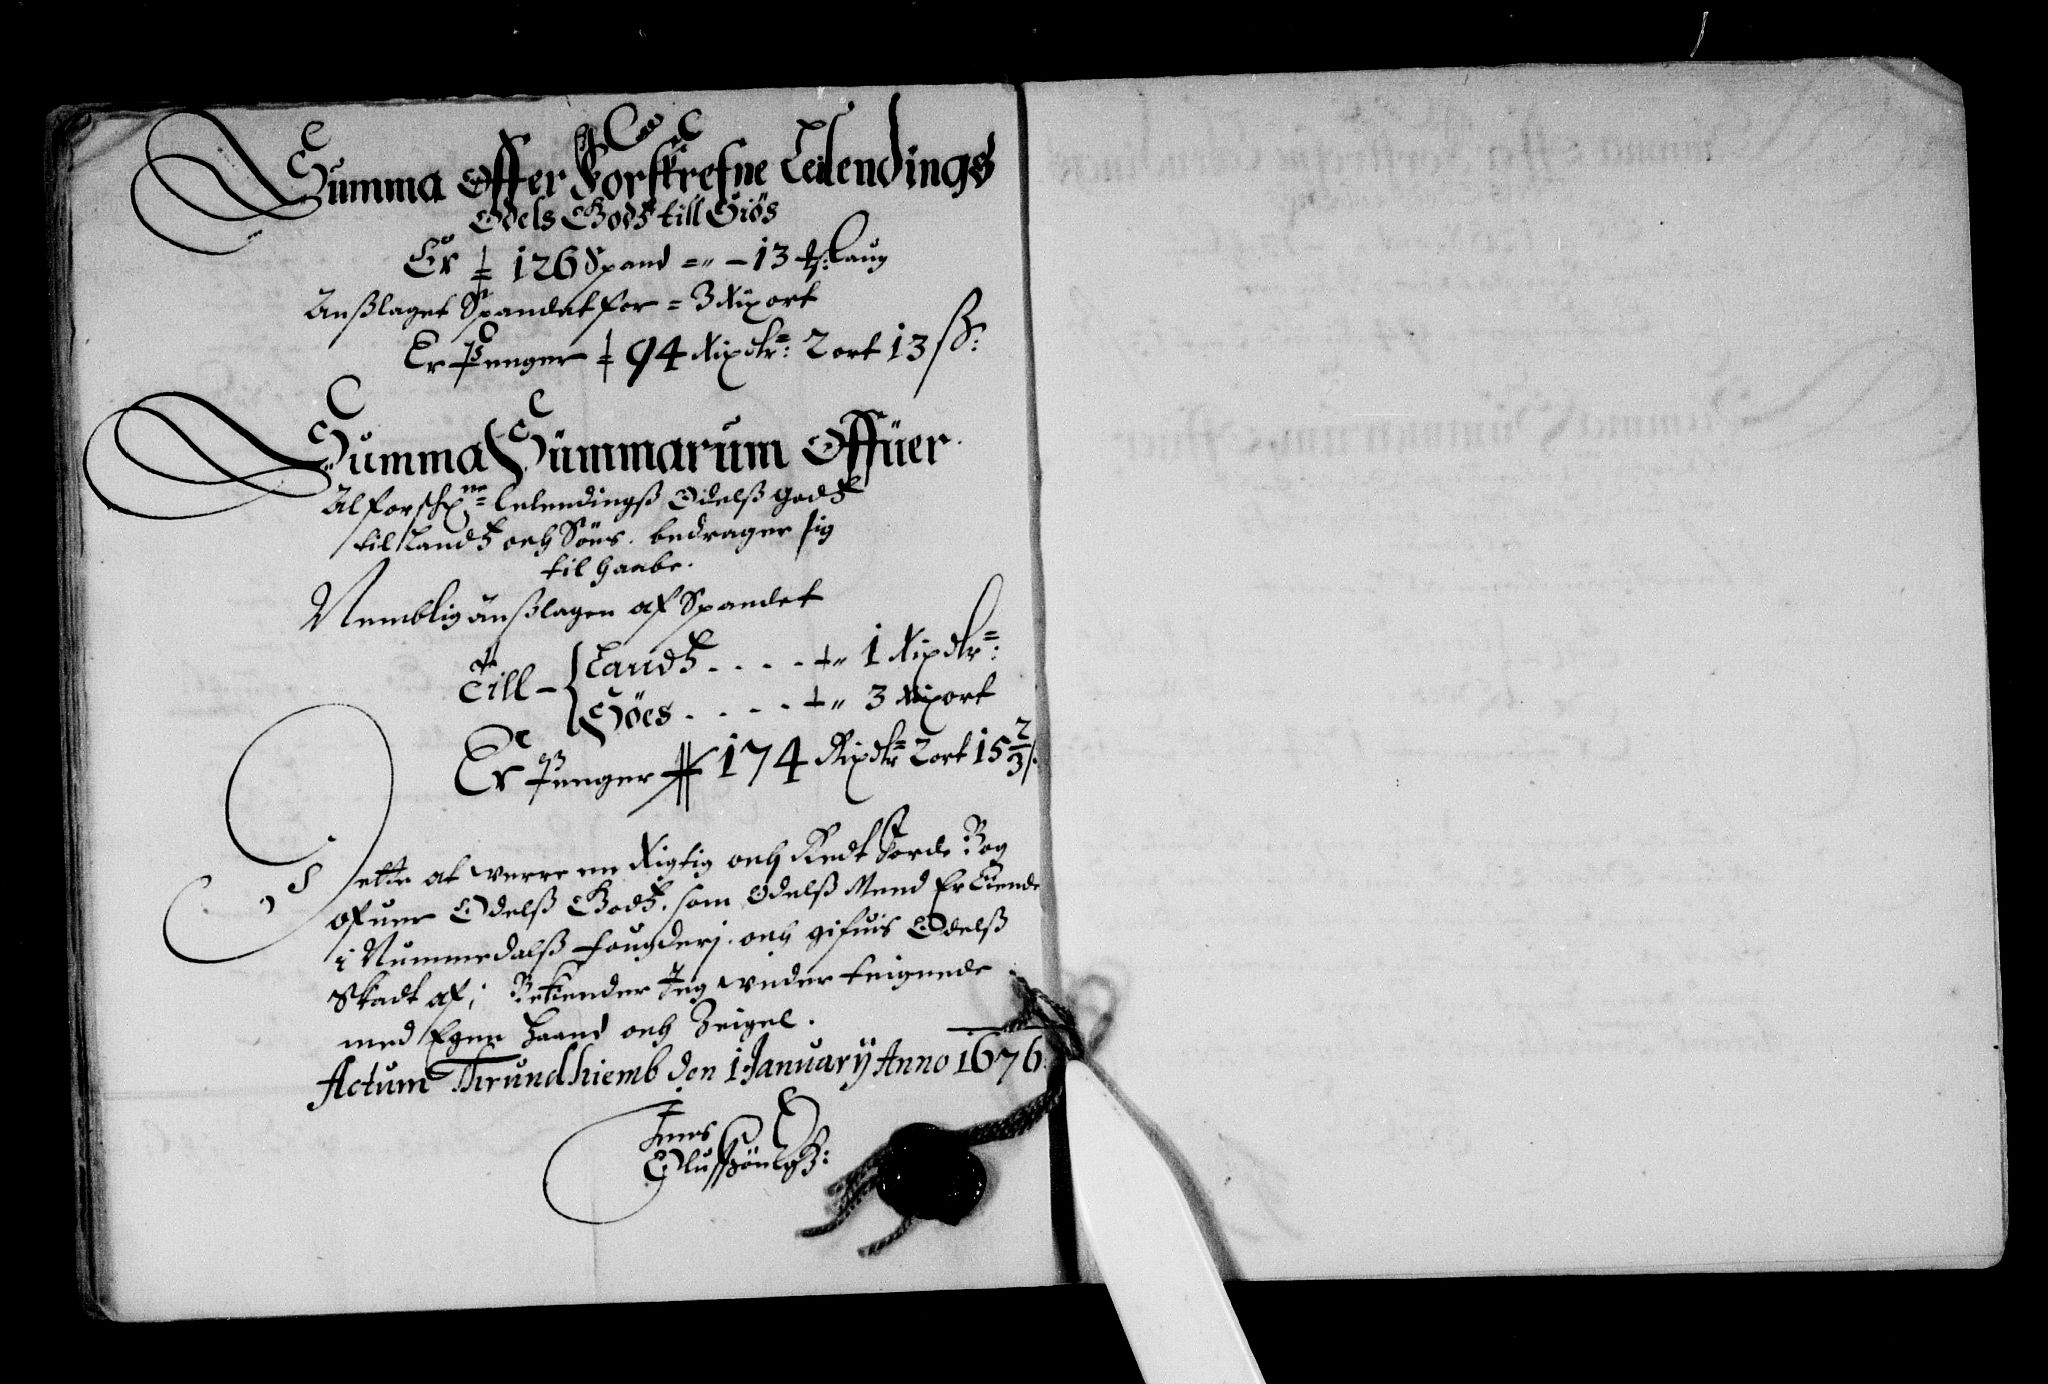 Summa Offer Forskrefne Leilendings
Odels Godtz till Siös
Er 126 Spand = 13 Laug
Anßlaget Spandet for = 3 Rixort
Er Penger 94 Rixdlr: 2 ort 13 ß:
Summa Summarum Offuer
Alforschne Lelendingß Odelß Godtz
til Landtz och Söes. bedrager sig
til haabe.
Nemblig Anßlagen af Spandet
Till - Landtz . . . . 1 Rixdlr:
Söes . . . . 3 Rixort
Er Penger 174 Rixdlr 2 ort 15 2/3 ß:
Dette at werre en Rigtig och Redt Jorde Bog
ofuer Odelß Godtz. som Odelß Mend Er Eiende
i Nummedalß fougderj. och gifuis Odelß
Skadt af; Bekiender Jeg vnder teignede
med Egen Haand och Zeigel.
Actum Thrundhiemb den 1 January Anno 1676.
Jens
Olufsön